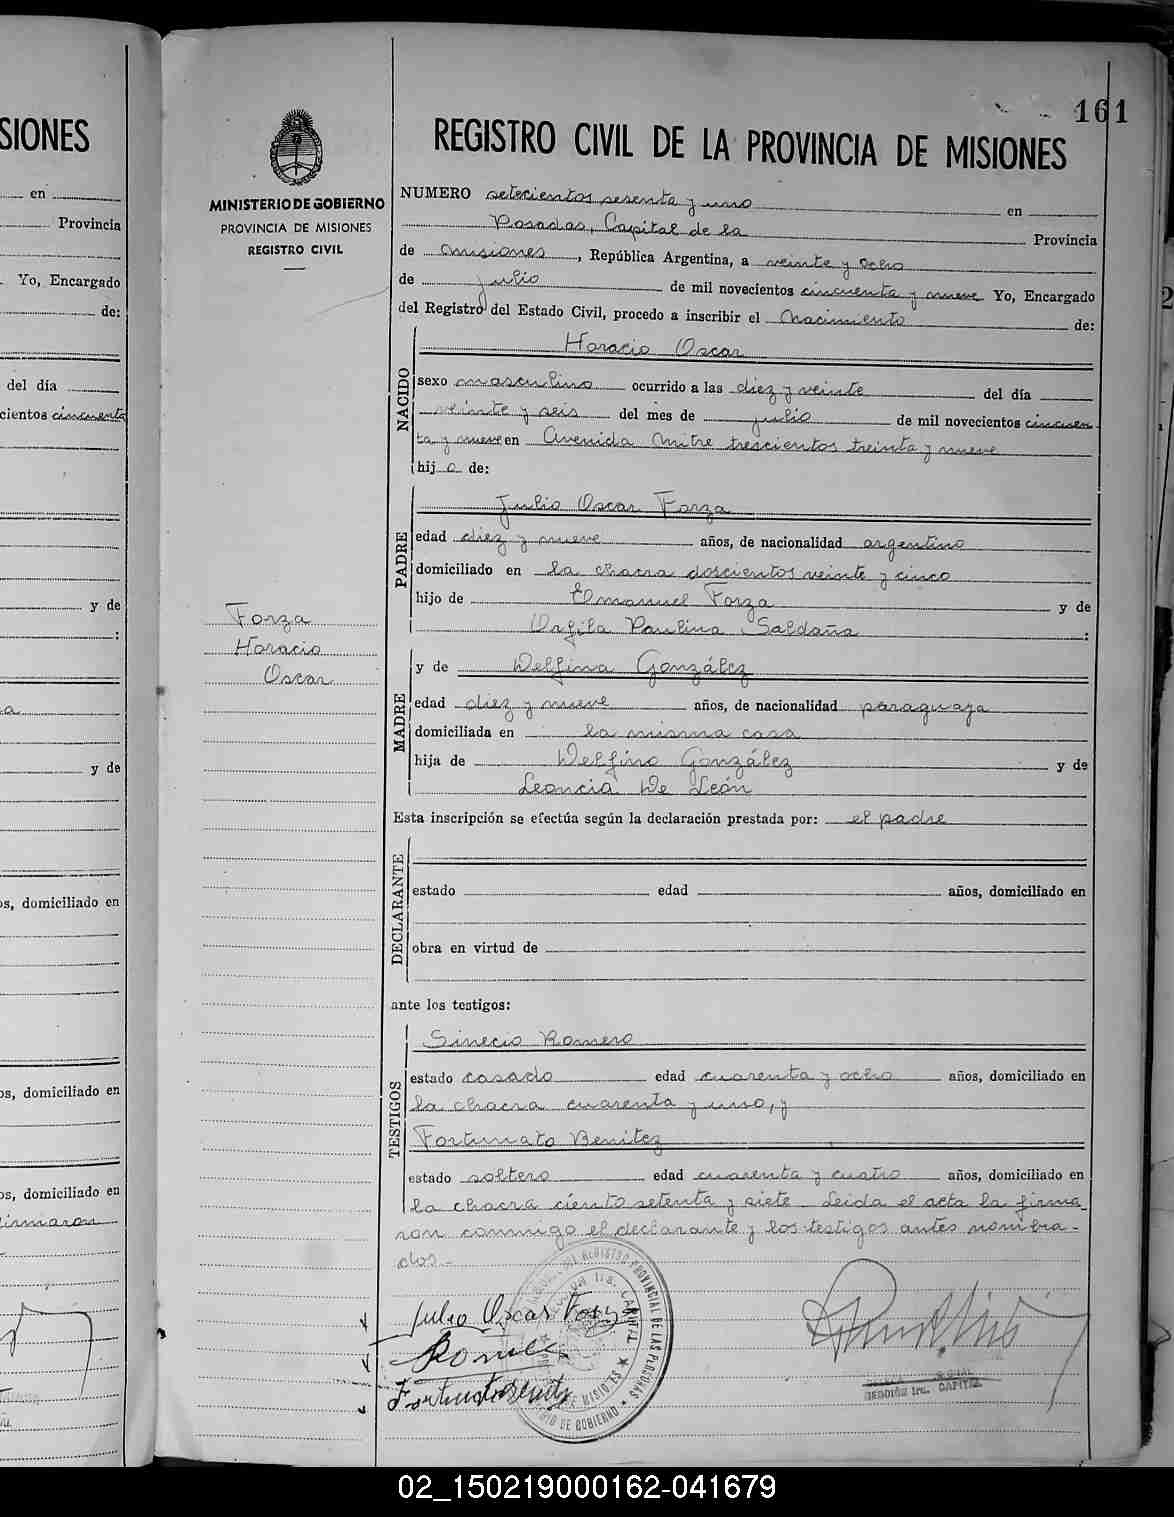 SIONES
en
Provincia
Yo, Encargado
de:
del día
cientos cincuenta
y de
:
a
y de
os, domiciliado en
os, domiciliado en
os, domiciliado en
firmaron
161
MINISTERIO DE GOBIERNO
PROVINCIA DE MISIONES
REGISTRO CIVIL
Forza
Horacio
Oscar
REGISTRO CIVIL DE LA PROVINCIA DE MISIONES
NUMERO setecientos sesenta y uno en
Posadas, Capital de la Provincia
de Misiones, República Argentina, a veinte y ocho
de julio de mil novecientos cincuenta y nueve Yo, Encargado
del Registro del Estado Civil, procedo a inscribir el Nacimiento de:
NACIDO
Horacio Oscar
sexo masculino ocurrido a las diez y veinte del día
veinte y seis del mes de julio de mil novecientos cincuen-
ta y nueve en Avenida Mitre trescientos treinta y nueve
hij o de:
PADRE
Julio Oscar Forza
edad diez y nueve años, de nacionalidad argentino
domiciliado en la chacra doscientos veinte y cinco
hijo de Emanuel Forza y de
Orfila Paulina Saldaña :
MADRE
y de Delfina González
edad diez y nueve años, de nacionalidad paraguaya
domiciliada en la misma casa
hija de Delfino González y de
Leoncia De León
Esta inscripción se efectúa según la declaración prestada por: el padre
DECLARANTE
estado edad años, domiciliado en
obra en virtud de
ante los testigos:
TESTIGOS
Sinecio Romero
estado casado edad cuarenta y ocho años, domiciliado en
la chacra cuarenta y uno, y
Fortunato Benitez
estado soltero edad cuarenta y cuatro años, domiciliado en
la chacra ciento setenta y siete. Leida el acta la firma
ron conmigo el declarante y los testigos antes nombra-
dos.-
Julio Oscar Forza
SECCIÓN 1ra. CAPITAL
02_150219000162-041679